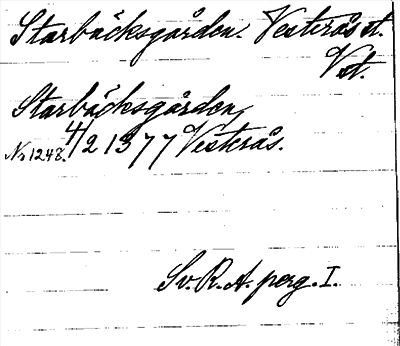 Starbäcksgården. Vesterås st.
Vst.
Starbäcksgården,
No 1248. 4/2 1377 Vesterås.
Sv. R. A. perg. I.